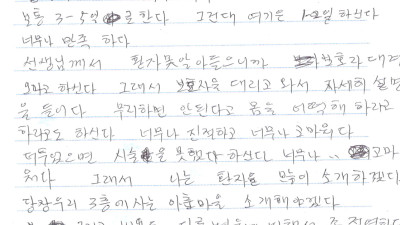 보통 3-5일 로 한다 그런데 여기는 1-2일 하신다
너무나 만족 하다
선생님께서 환자못알아들으니까 보호자 대려
오라고 하신다 그래서 보호자을 대리고 와서 자세히 설명
을 들니다 무리하면 안된다고 몸을 어떡해 하라고
하라고도 하신다 너무나 친적하고 너무나 고마워다
더두었으면 시술을 못했다 하신다 너무나 .. 고마
워다 그래서 나는 환자을 많이 소개하겠다
당장우리 3층에사는 아줌마을 소개해주겠다